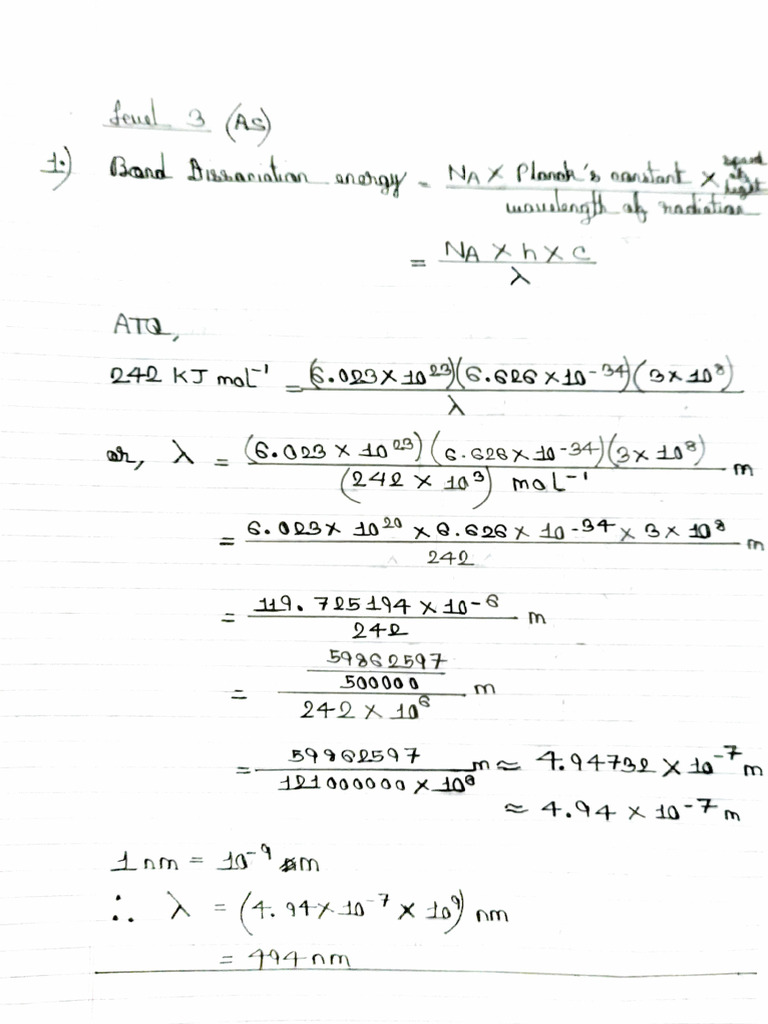 Level 3 (AS)
1.) Bond Dissociation energy = NA × Planck's constant × speed of light / wavelength of radiation
= NA × h × c / λ
ATQ,
242 KJ mol⁻¹ = (6.023 × 10²³)(6.626 × 10⁻³⁴)(3 × 10⁸) / λ
or, λ = (6.023 × 10²³)(6.626 × 10⁻³⁴)(3 × 10⁸) / (242 × 10³) mol⁻¹ m
= 6.023 × 10²⁰ × 6.626 × 10⁻³⁴ × 3 × 10⁸ / 242 m
= 119.725194 × 10⁻⁶ / 242 m
= 59862597 / 500000 / 242 × 10⁶ m
= 59862597 / 121000000 × 10⁶ m ≈ 4.94732 × 10⁻⁷ m
≈ 4.94 × 10⁻⁷ m
1 nm = 10⁻⁹ m
∴ λ = (4.94 × 10⁻⁷ × 10⁹) nm
= 494 nm